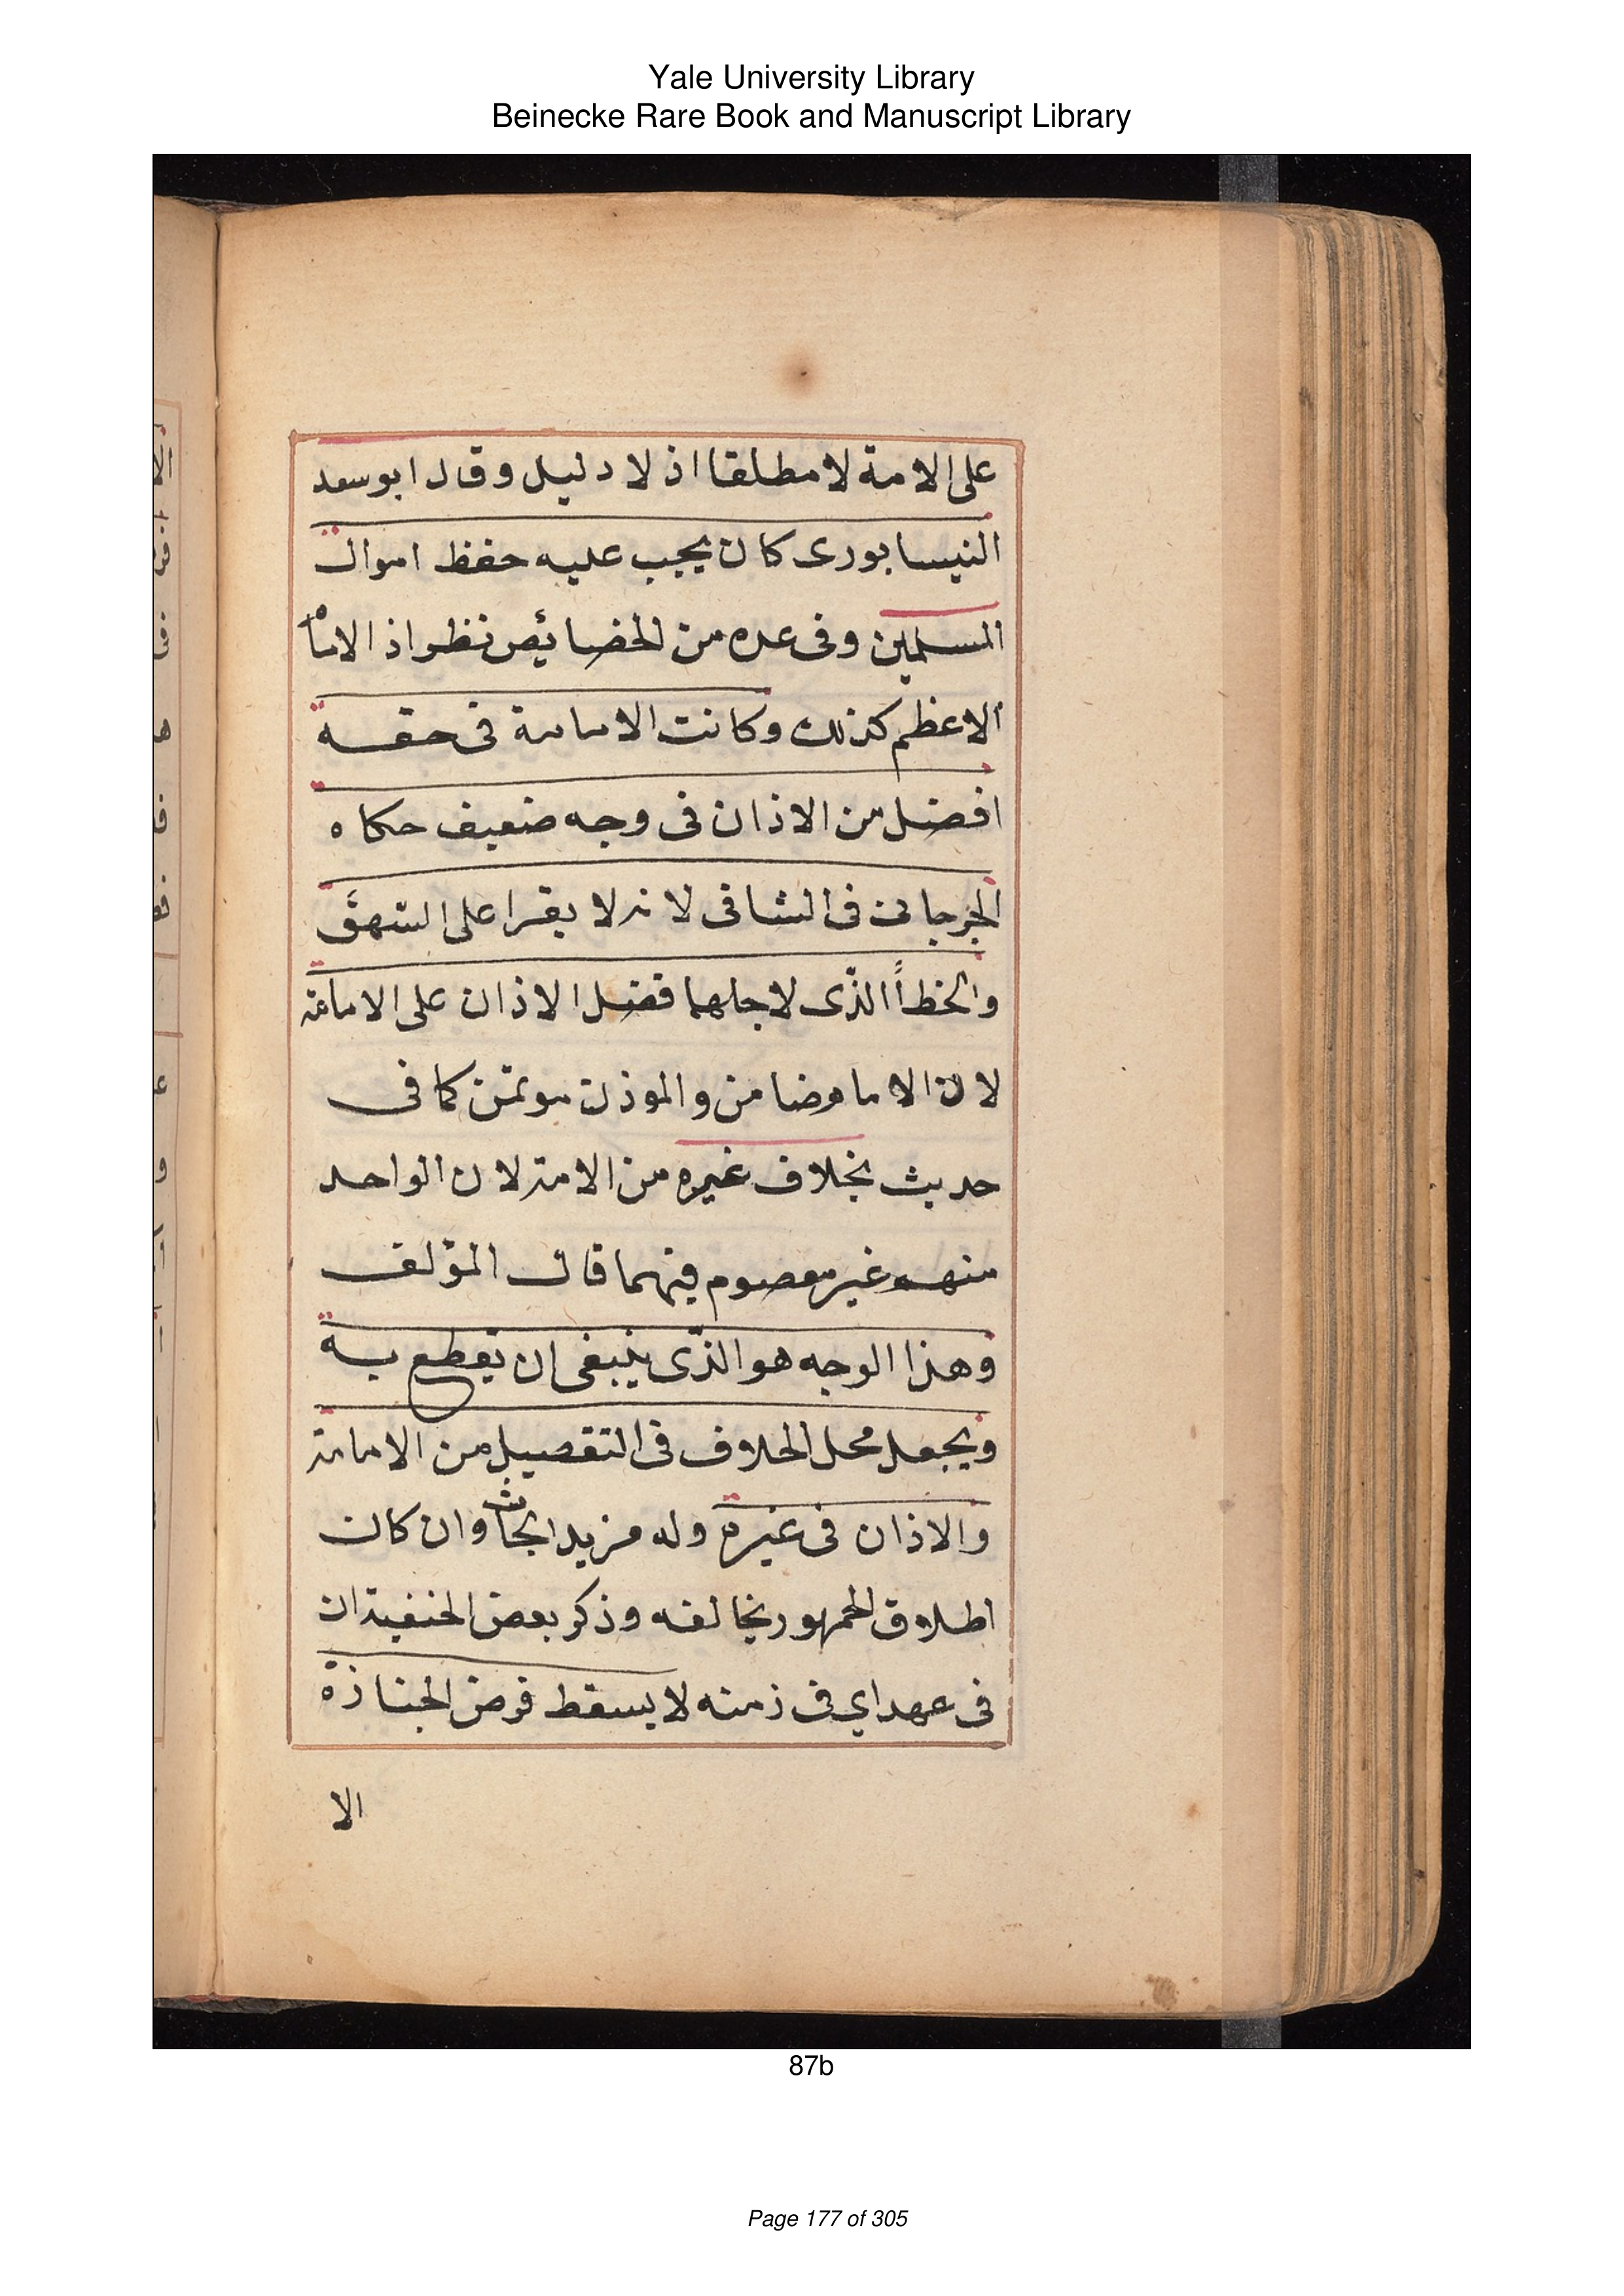 Yale University Library
Beinecke Rare Book and Manuscript Library
على الامة لا مطلقا اذ لا دليل وقال ابو سعد
النيسابورى كان يجب عليه حفظ اموال
المسلمين وفى عده من الخصائص نظر اذ الامام
الاعظم كذلك وكانت الامامة فى حقه
افضل من الاذان فى وجه ضعيف حكاه
الجرجانى فى الشافى لانه لا يقرا على السهو
والخطأ الذى لاجلهما فضل الاذان على الامامة
لان الامام ضامن والموذن موتمن كما فى
حديث بخلاف غيره من الامة لان الواحد
منهم غير معصوم فيهما قال المؤلف
وهذا الوجه هو الذى ينبغى ان يقطع به
ويجعل محل الخلاف فى التفصيل من الامامة
والاذان فى غيره وله مزيد ابحاث وان كان
اطلاق الجمهور يخالفه وذكر بعض الحنفية ان
فى عهد اي فى زمنه لا يسقط فرض الجنازة
الا
87b
Page 177 of 305